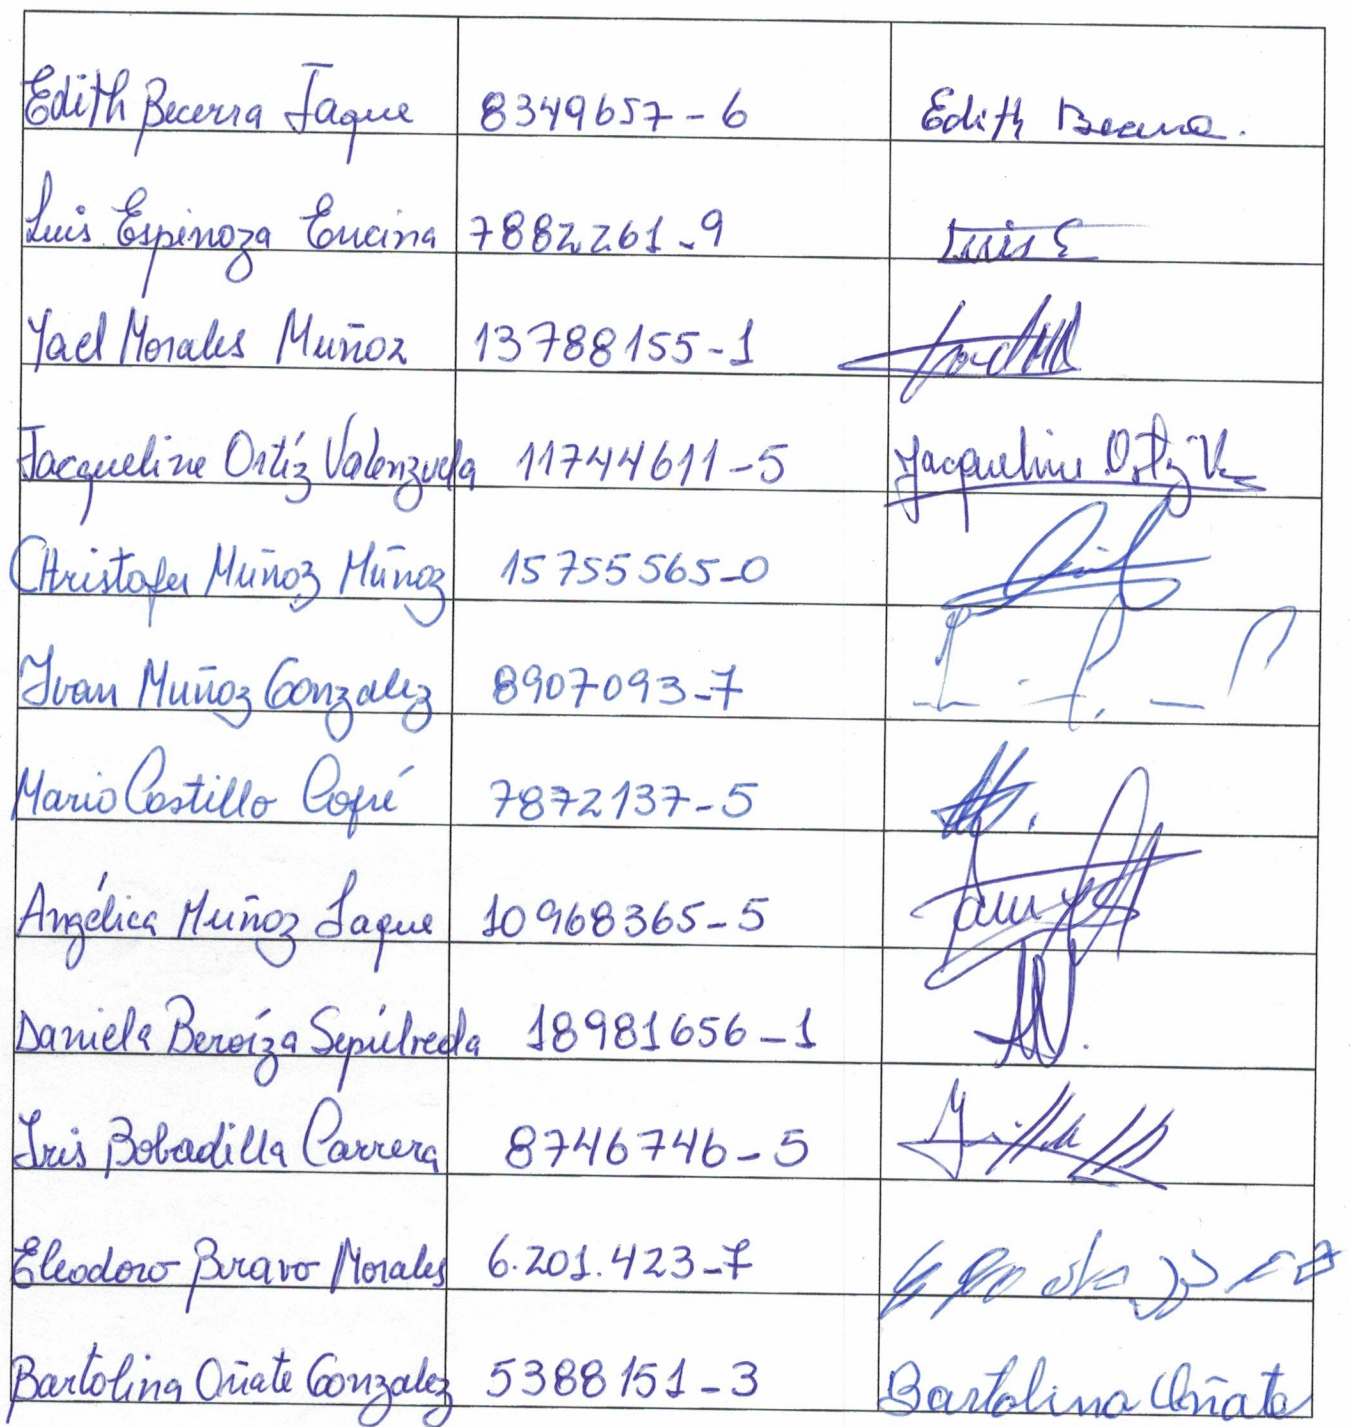 Edith Becerra Jaque 8349657-6 Edith Becerra.
Luis Espinoza Encina 7882261-9 Luis E
Yael Morales Muñoz 13788155-1
Jacqueline Ortíz Valenzuela 11744611-5 Jacqueline Ortiz V
CHristofer Muñoz Muñoz 15755565-0
Ivan Muñoz Gonzalez 8907093-7
Mario Castillo Cofré 7872137-5
Angélica Muñoz Jaque 10968365-5
Daniela Beroíza Sepúlveda 18981656-1
Iris Bobadilla Carrera 8746746-5
Eleodoro Bravo Morales 6.201.423-7
Bartolina Oñate Gonzalez 5388151-3 Bartolina Oñate